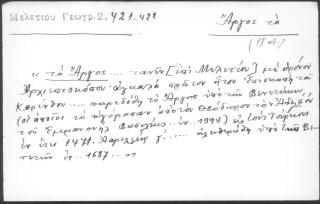 Μελετίου Γεωγρ. 2, 421-422
Ἄργος τὸ
(Πελ.)
« τὸ Ἄργος .... τανῦν [ἐπὶ Μελετίου] μὲ θρόνον
Ἀρχιεπισκόπου ἀγκαλὰ πρῶτον ἦτον ἐπισκοπὴ τοῦ
Κορίνθου .... παρεδόθη τὸ Ἄργος ὑπὸ τῶν Βενετικῶν,
(οἱ ὁποῖοι τὸ ἠγόρασαν ἀπὸ τὸν Θεόδωρον τὸν Ἀδελφὸν
τοῦ Ἐμμανουὴλ Βασιλέως .. ἐν .. 1394) εἰς τοὺς Τούρκους
ἐν ἔτει 1471. Ἀπριλλίῳ γ΄..... ἠλευθερώθη ὑπὸ τῶν Βε-
νετῶν ἐν .. 1687 ... »